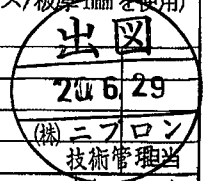 板厚1mmを使用)
出図
20 6.29
(株)ニフロン
技術管理担当